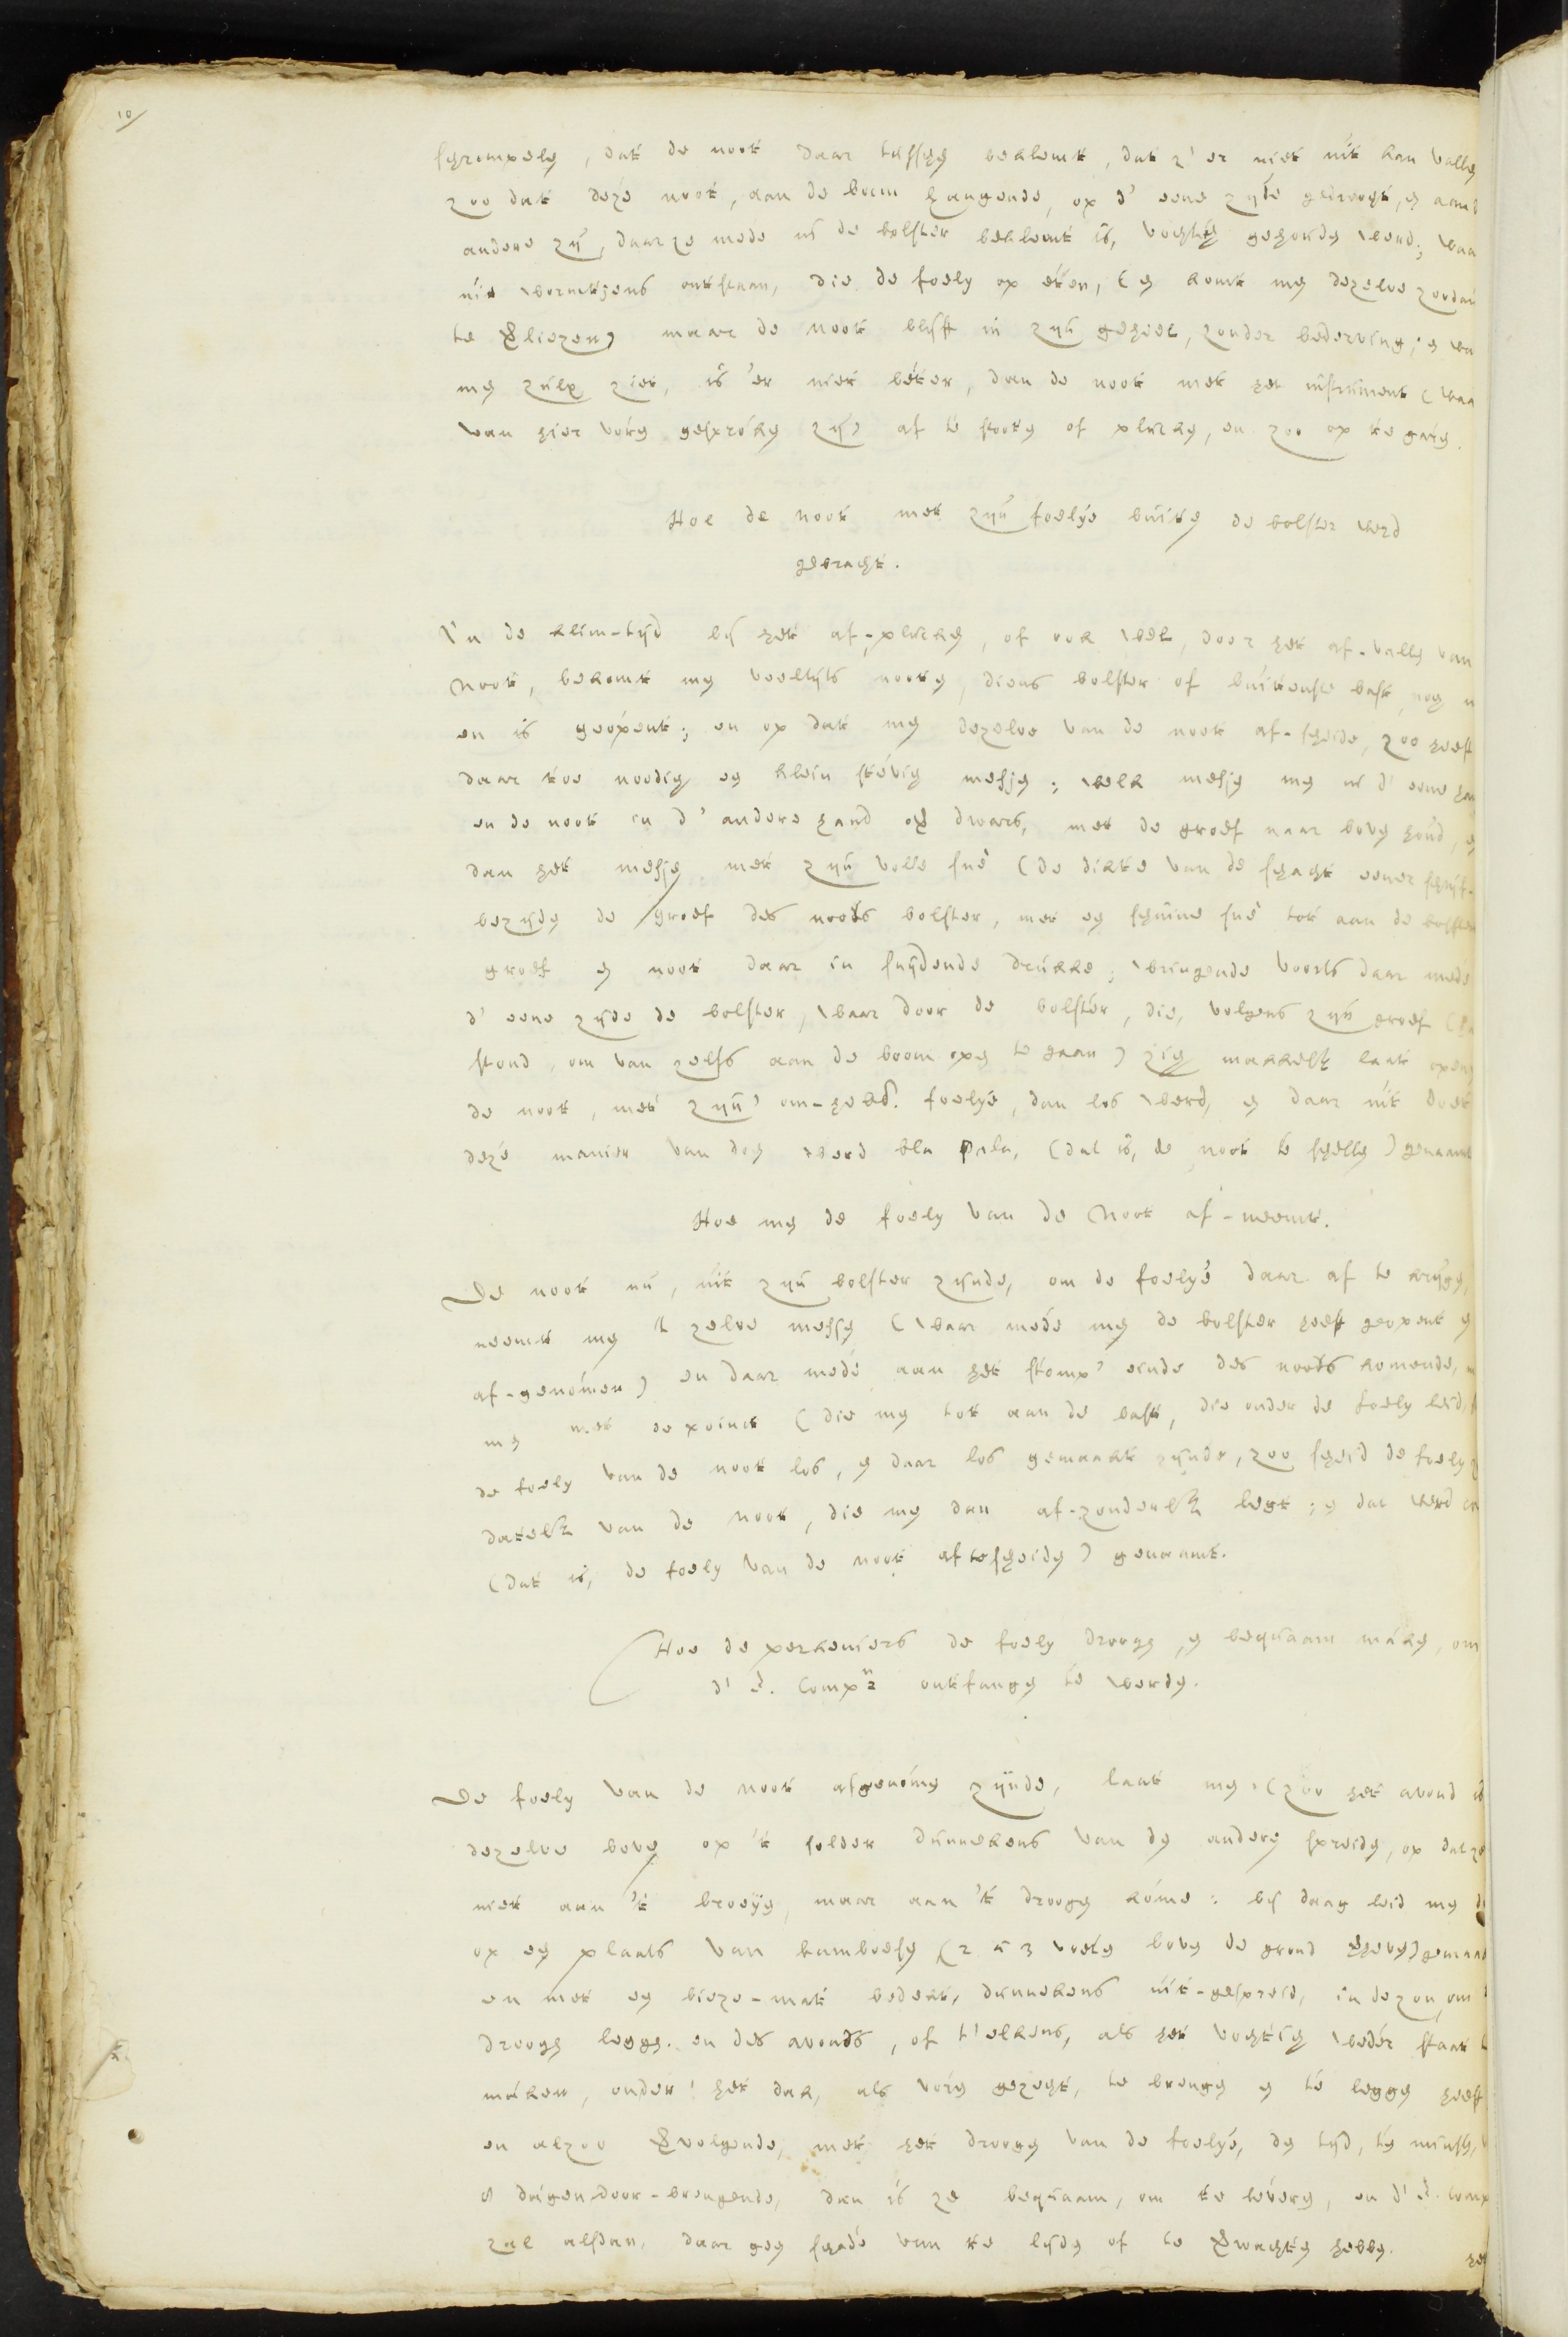 10/
schrompelen, dat de noot daar tusschen beklemt, dat z'er niet uit kan vallen
zoo dat deze noot, aan de boom hangende, op d' eene zyde gedroogt, en aan d
andere zÿ, daar ze mede in de bolster beklemt is, vochtig gehouden werd; waar
uit wormtjens ontstaan, die de foely op eten, (en komt men dezelve zoodan
te verliezen) maar de noot blÿft in zÿn geheel, zonder bederving; en wan
men zulx ziet, is 'er niet beter, dan de noot met het instrument (waar
van hier voren gesproken zÿ) af te stooten of plukken, en zoo op te garen.
Hoe de noot met zÿn foelÿe buiten de bolster werd
gebracht.
In de klim-tÿd bÿ het af-plukken, of ook wel, door het af-vallen van
Noot, bekomt men veeltÿts nooten, diens bolster of buitenste bast, nog n
en is geopent; en op dat men dezelve van de noot af-scheide, zoo heeft
daar toe noodig een klein stevig mesjen; welk mesjen men in d' eene han
en de noot in d' andere hand op dwars, met de groef naar boven houd, en
dan het mesje met zÿn volle sne (de dikte van de schacht eener schrÿf-
bezÿden de groef des noots bolster, met een schuine sne tot aan de bolster
groef en noot daar in snÿdende drukke; wringende voorts daar mede
d' eene zÿde de bolster, waar door de bolster, die, volgens zÿn groef
stond, om van zelfs aan de boom open te gaan) zig makkelÿk laat openen
de noot, met zÿn' om-hebd. foelÿe, dan los werd, en daar uit doet
deze manier van doen werd bla pala, (dat is, de noot te schellen) genaamt
Hoe men de foely van de Noot af-neemt.
De noot nu, uit zÿn bolster zÿnde, om de foelÿe daar af te krÿgen,
neemt men 't zelve mesjen (waar mede men de bolster heeft geopent en
af-genomen) en daar mede aan het stomp' einde des noots komende, m
men met de point (die men tot aan de bast, die onder de foely leid, s
de foely van de noot los, en daar los gemaakt zÿnde, zoo scheid de foely z
datelÿk van de noot, die men dan af-zonderlÿk legt; en dat werd
(dat is, de foely van de noot aftescheiden) genaamt.
Hoe de perkeniers de foely droogen, en bequaam maken, om
d' E. Compie ontfangen te werden.
De foely van de noot afgenomen zÿnde, laat men, (zoo het avond is
dezelve boven op 't solder dunnekens van den anderen spreiden, op dat ze
niet aan 't broeÿen, maar aan 't droogen kome: bÿ daag leid men d
op een plaats van bamboesen (2 à 3 voeten boven de grond verheven) gemaak
en met een bieze-mat bedekt, dunnekens uit-gespreid, in de zon, om
droogen leggen. en des avonds, of t'elkens, als het vochtig weder staat t
maken, onder het dak, als voren gezegt, te brengen en te leggen heeft
en alzoo vervolgende, met het droogen van de foelÿe, den tÿd, ten minsten,
8 dagen door-brengende, dan is ze bequaam, om te leveren, en d' E. Comp
zal alsdan, daar geen schade van te lÿden of te verwachten hebben.
het